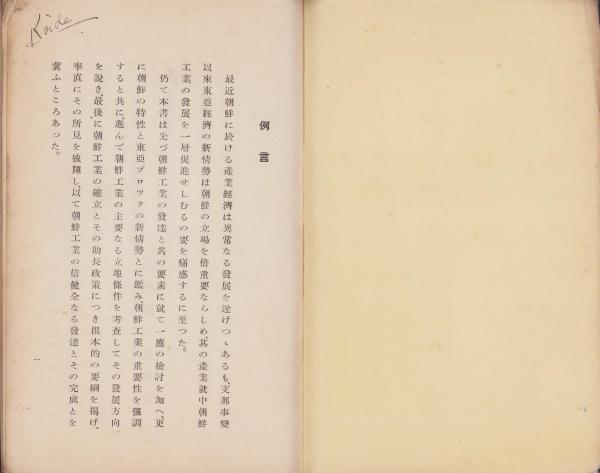 Koide
例言
最近朝鮮に於ける產業經濟は異常なる發展を遂げつゝあるも、支那事變
以來東亞經濟の新情勢は朝鮮の立場を倍重要ならしめ、其の產業就中朝鮮
工業の發展を一層促進せしむるの要を痛感するに至つた。
仍て本書は先づ朝鮮工業の發達と其の要素に就て一應の檢討を加へ、更
に朝鮮の特性と東亞ブロックの新情勢とに鑑み、朝鮮工業の重要性を强調
すると共に、進んで朝鮮工業の主要なる立地條件を考査してその發展方向
を說き、最後に朝鮮工業の確立とその助長政策につき根本的の要綱を揭げ、
率直にその所見を披陳し、以て朝鮮工業の倍健全なる發達とその完成とを
冀ふところあつた。
一